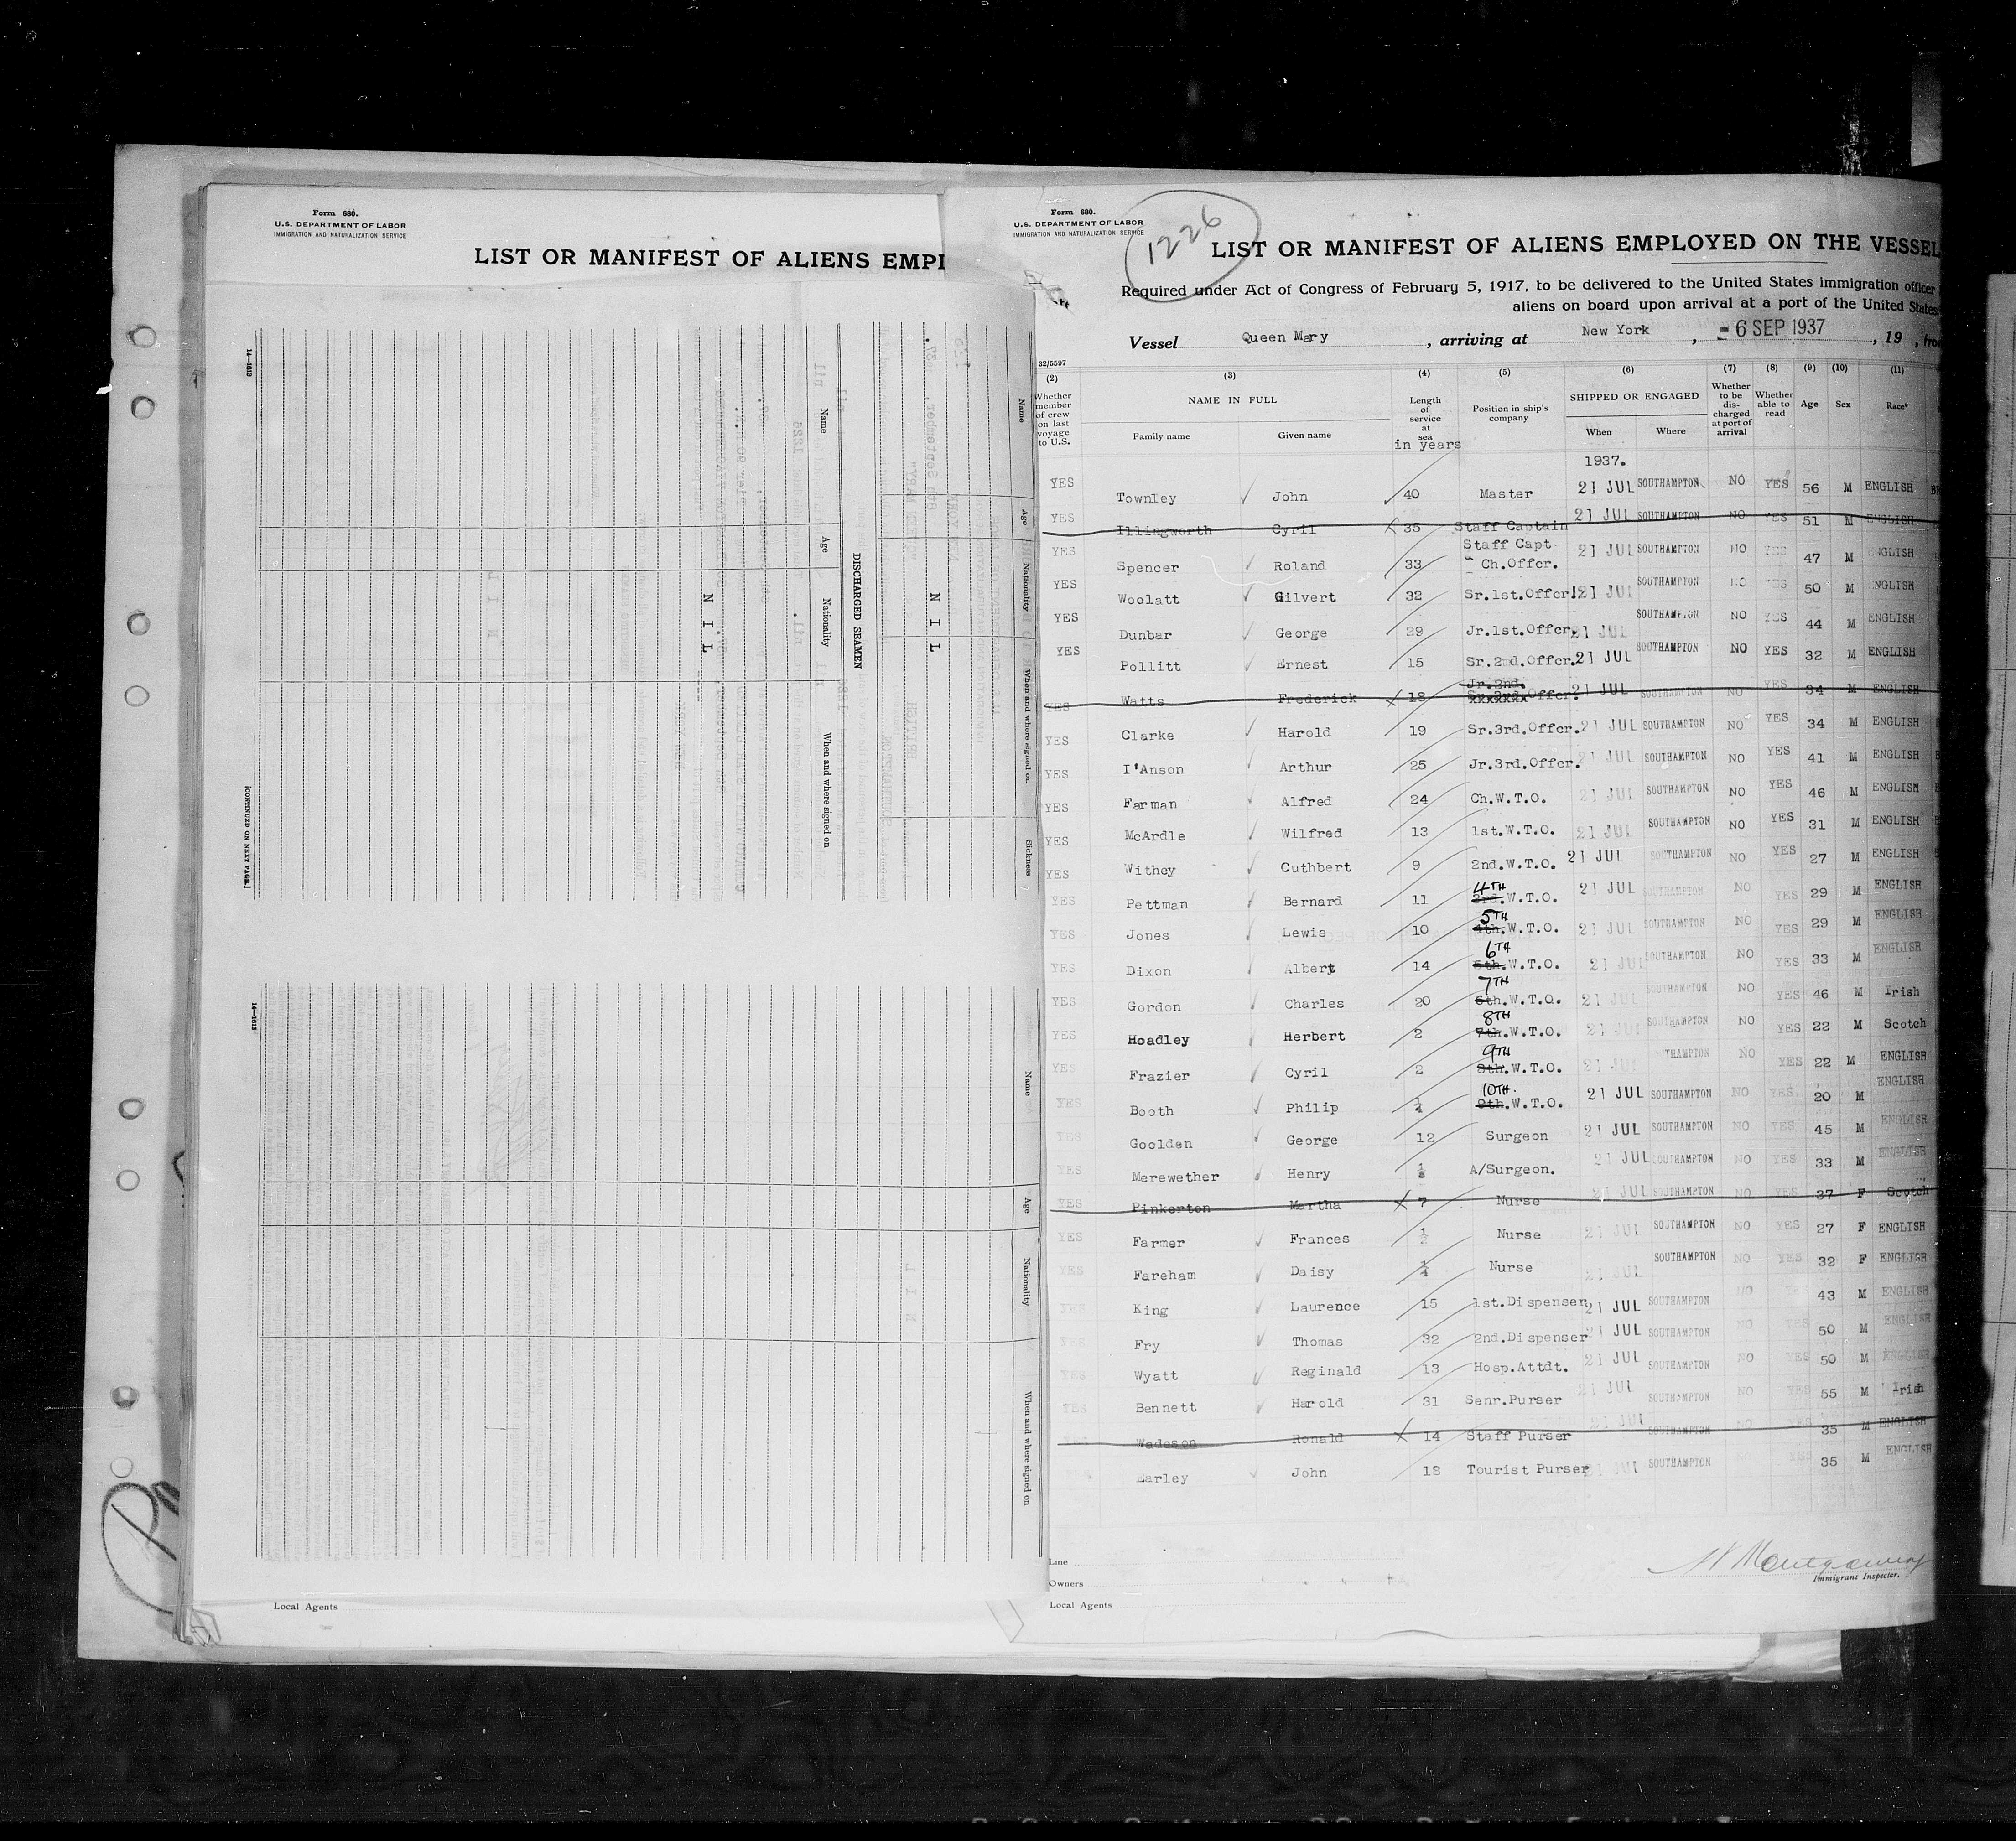 Form 680.
U.S. DEPARTMENT OF LABOR
IMMIGRATION AND NATURALIZATION SERVICE
LIST OR MANIFEST OF ALIENS EMPL
14—1512
[CONTINUED ON NEXT PAGE.]
Name
Age
Nationality
When and where signed on
DISCHARGED SEAMEN
NIL
NIL
Name
Age
Nationality
When and where signed on
Sickness
14—1512
Name
Age
Nationality
When and where signed on
Local Agents
Form 680.
U.S. DEPARTMENT OF LABOR
IMMIGRATION AND NATURALIZATION SERVICE
1226
LIST OR MANIFEST OF ALIENS EMPLOYED ON THE VESSEL
Required under Act of Congress of February 5, 1917, to be delivered to the United States immigration officer
aliens on board upon arrival at a port of the United States
Vessel Queen Mary, arriving at New York, - 6 SEP 1937, 19 , from
32/5597
(2) (3) (4) (5) (6) (7) (8) (9) (10) (11)
Whether member of crew on last voyage to U.S.
NAME IN FULL
Family name Given name
Length of service at sea in years
Position in ship's company
SHIPPED OR ENGAGED
When Where
Whether to be discharged at port of arrival
Whether able to read
Age
Sex
Race
1937.
YES Townley John 40 Master 21 JUL SOUTHAMPTON NO YES 56 M ENGLISH
YES Illingworth Cyril 35 Staff Captain 21 JUL SOUTHAMPTON NO YES 51 M ENGLISH
YES Spencer Roland 33 Staff Capt & Ch.Offcr. 21 JUL SOUTHAMPTON NO YES 47 M ENGLISH
YES Woolatt Gilvert 32 Sr.1st.Offcr. 21 JUL SOUTHAMPTON NO YES 50 M ENGLISH
YES Dunbar George 29 Jr.1st.Offcr. 21 JUL SOUTHAMPTON NO YES 44 M ENGLISH
YES Pollitt Ernest 15 Sr.2nd.Offcr. 21 JUL SOUTHAMPTON NO YES 32 M ENGLISH
YES Watts Frederick 18 Jr.2nd. Sr.3rd.Offcr. 21 JUL SOUTHAMPTON NO YES 34 M ENGLISH
YES Clarke Harold 19 Sr.3rd.Offcr. 21 JUL SOUTHAMPTON NO YES 34 M ENGLISH
YES I'Anson Arthur 25 Jr.3rd.Offcr. 21 JUL SOUTHAMPTON NO YES 41 M ENGLISH
YES Farman Alfred 24 Ch.W.T.O. 21 JUL SOUTHAMPTON NO YES 46 M ENGLISH
YES McArdle Wilfred 13 1st.W.T.O. 21 JUL SOUTHAMPTON NO YES 31 M ENGLISH
YES Withey Cuthbert 9 2nd.W.T.O. 21 JUL SOUTHAMPTON NO YES 27 M ENGLISH
YES Pettman Bernard 11 4TH 3rd.W.T.O. 21 JUL SOUTHAMPTON NO YES 29 M ENGLISH
YES Jones Lewis 10 5TH 4th.W.T.O. 21 JUL SOUTHAMPTON NO YES 29 M ENGLISH
YES Dixon Albert 14 6TH 5th.W.T.O. 21 JUL SOUTHAMPTON NO YES 33 M ENGLISH
YES Gordon Charles 20 7TH 6th.W.T.O. 21 JUL SOUTHAMPTON NO YES 46 M Irish
YES Hoadley Herbert 2 8TH 7th.W.T.O. 21 JUL SOUTHAMPTON NO YES 22 M Scotch
YES Frazier Cyril 2 9TH 8th.W.T.O. 21 JUL SOUTHAMPTON NO YES 22 M ENGLISH
YES Booth Philip ¼ 10TH. 9th.W.T.O. 21 JUL SOUTHAMPTON NO YES 20 M ENGLISH
YES Goolden George 12 Surgeon 21 JUL SOUTHAMPTON NO YES 45 M ENGLISH
YES Merewether Henry A/Surgeon. 21 JUL SOUTHAMPTON NO YES 33 M ENGLISH
YES Pinkerton Martha 7 Nurse 21 JUL SOUTHAMPTON NO YES 37 F Scotch
YES Farmer Frances ½ Nurse 21 JUL SOUTHAMPTON NO YES 27 F ENGLISH
YES Fareham Daisy ¼ Nurse 21 JUL SOUTHAMPTON NO YES 32 F ENGLISH
YES King Laurence 15 1st.Dispenser 21 JUL SOUTHAMPTON NO YES 43 M ENGLISH
YES Fry Thomas 32 2nd.Dispenser 21 JUL SOUTHAMPTON NO YES 50 M ENGLISH
YES Wyatt Reginald 13 Hosp.Attdt. 21 JUL SOUTHAMPTON NO YES 50 M ENGLISH
YES Bennett Harold 31 Senr.Purser 21 JUL SOUTHAMPTON NO YES 55 M Irish
YES Wadeson Ronald 14 Staff Purser 21 JUL SOUTHAMPTON NO YES 35 M ENGLISH
Earley John 18 Tourist Purser 21 JUL SOUTHAMPTON YES 35 M ENGLISH
Line
Owners
Local Agents
Montgomery
Immigrant Inspector.